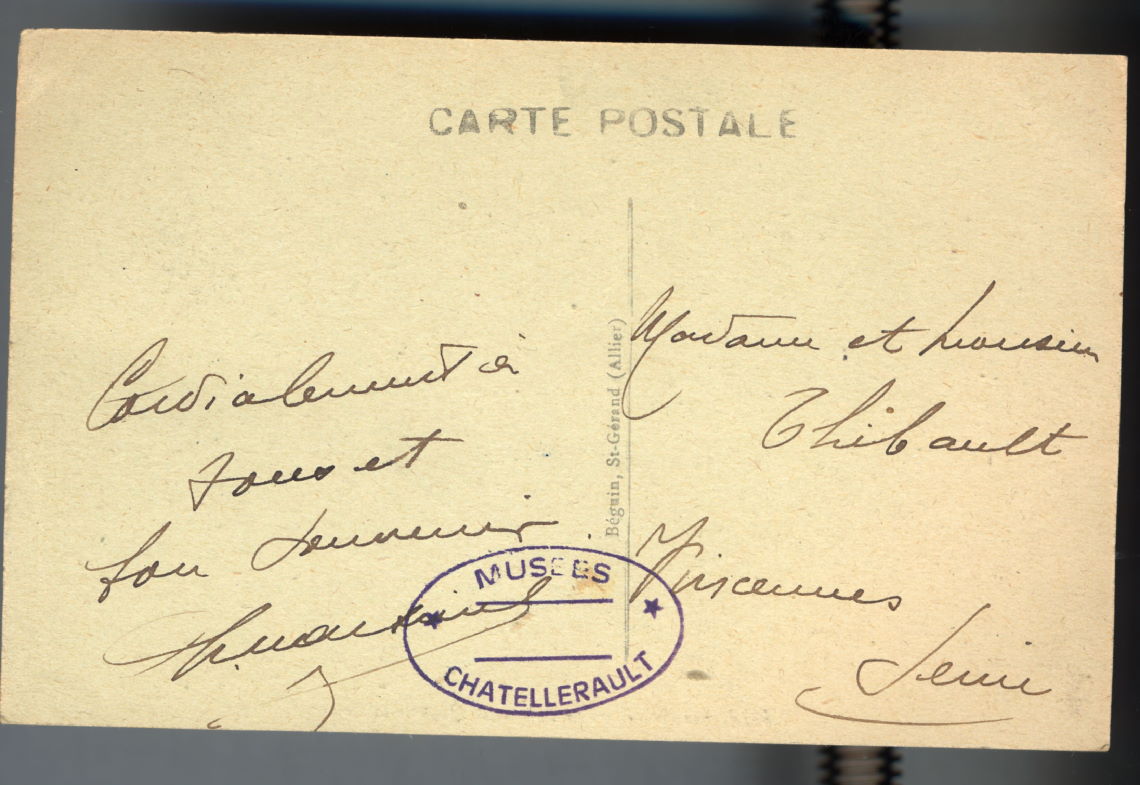 CARTE POSTALE
Cordialement à
tous et
bon souvenir
Madame et Monsieur
Thibault
Vincennes
Seine
Béguin, St-Gérand (Allier)
MUSEES
CHATELLERAULT